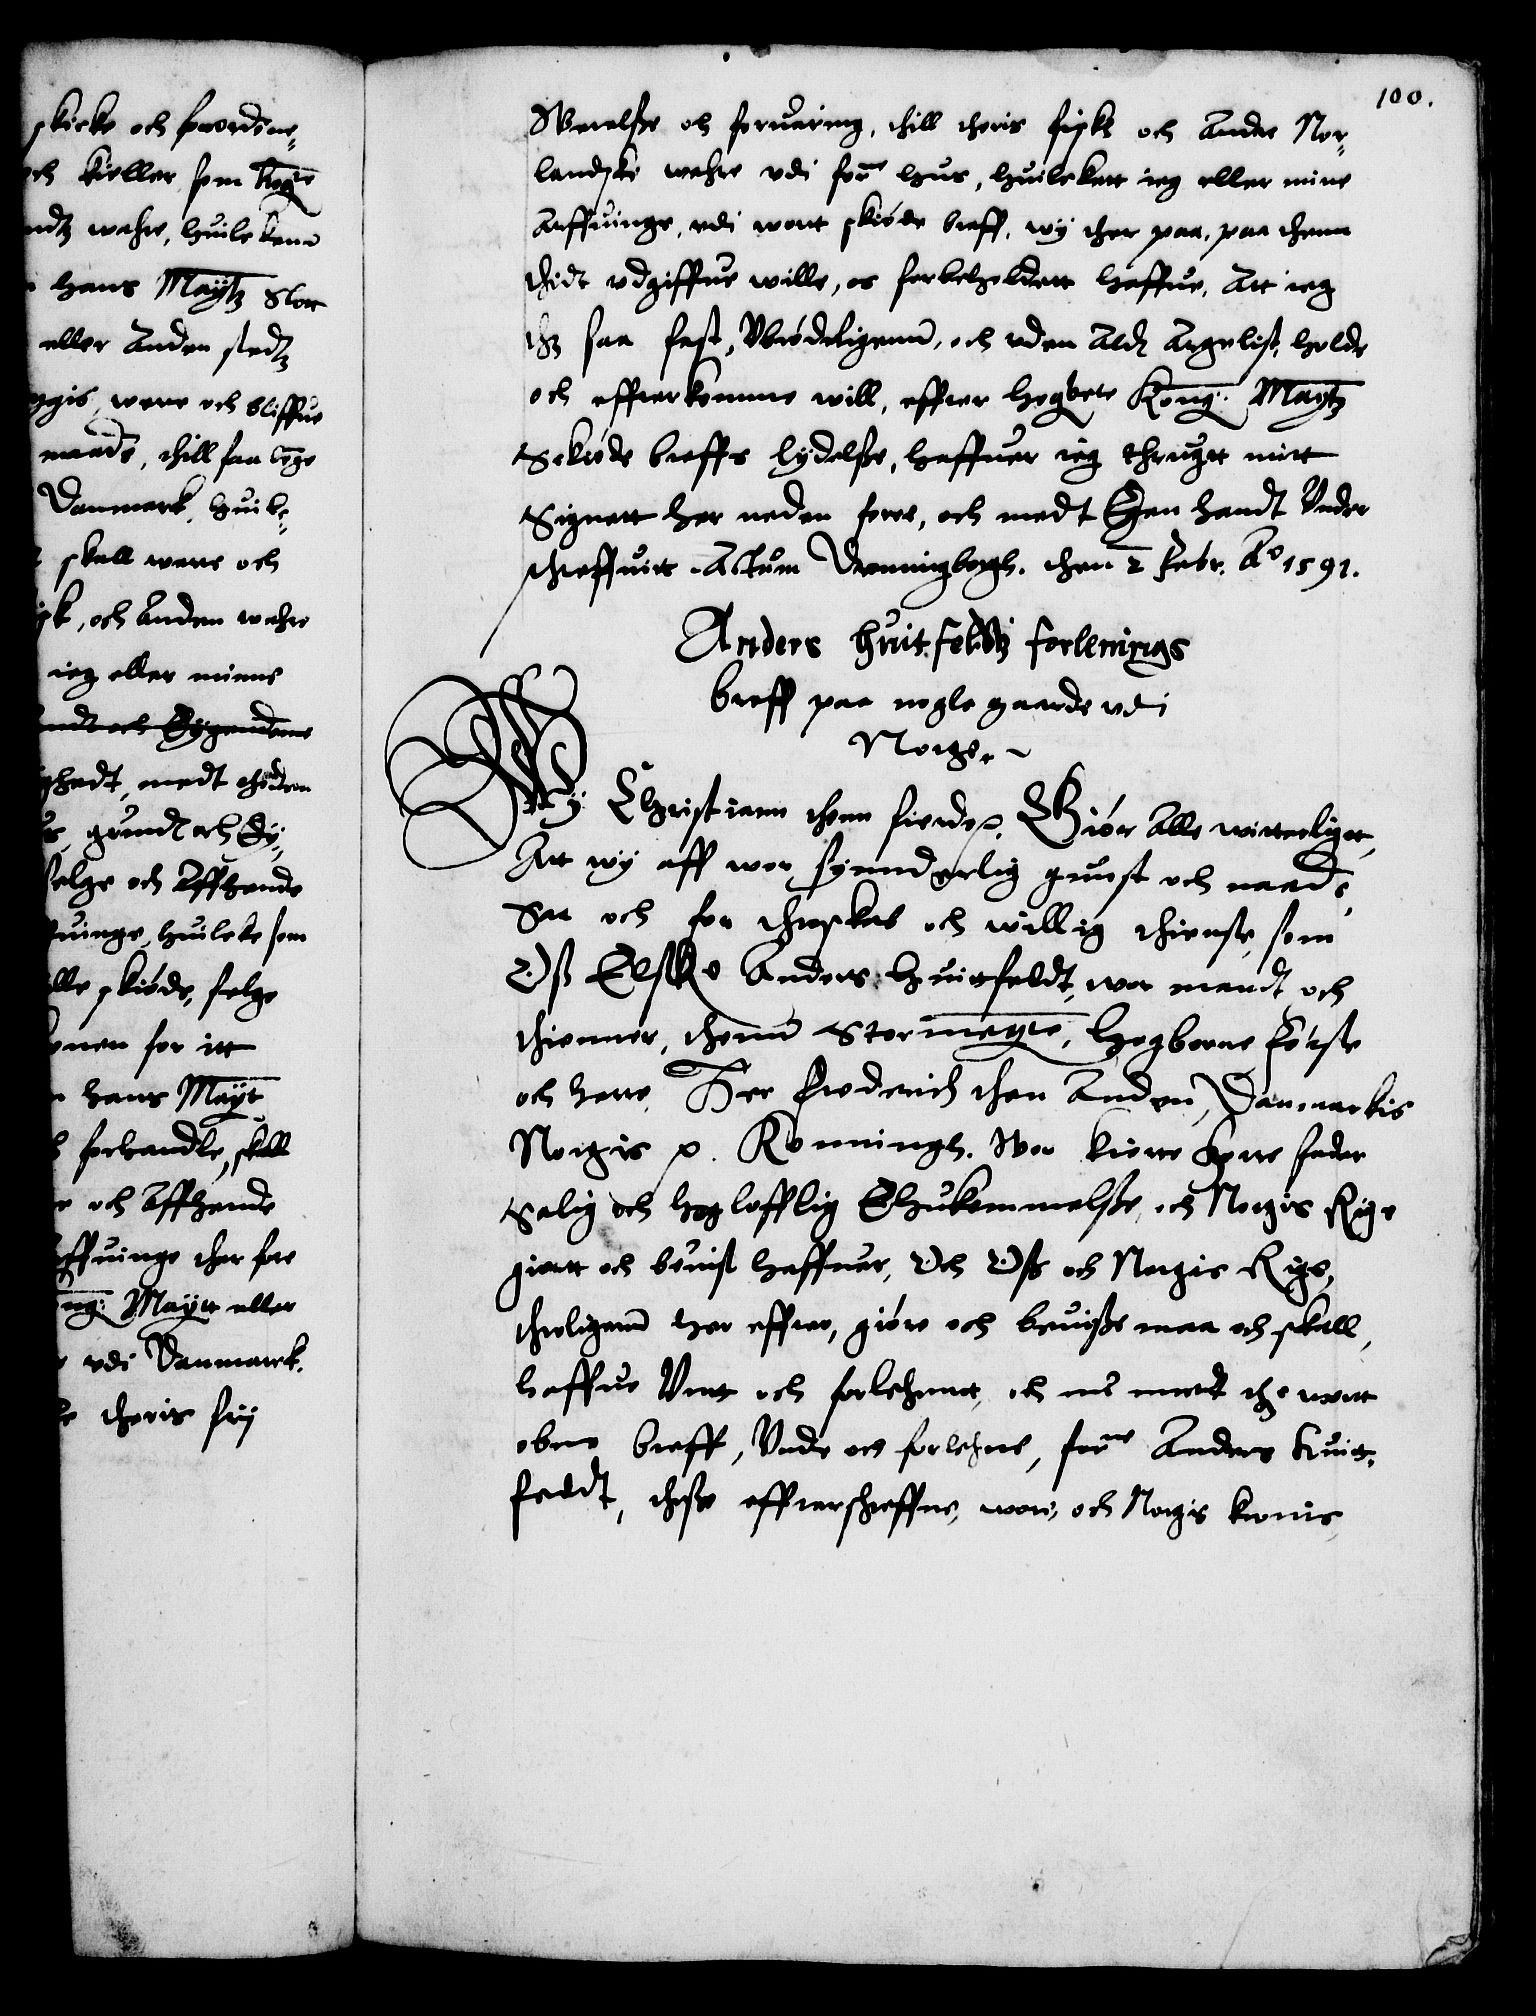 skicke och forordine,,
och kieller som høgbte
ndtz wahre, huilckenn
hans Maytz slott
eller anden stedtz
rgis, were och bliffue
maade, thill saa lenge
Danmarck, huil,,
skall were och
isk, och anden wahre
ieg eller minne
och Eyendomme
ghedt, medt
grundt och Ey,,
selge och affhende
ffuinge, huilcke som
ille skiøde, selge
for itt
hans Mayt
forhandle, skall
och affhende
rffuinge ther fore
Kong: Maytt eller
udi Danmarck.
theris frij
100.
Werelsse och foruaring, thill theris fisk och andre Nor,,
landske wahre udi forne huus, huilckett ieg eller mine
Arffuinge, udi wort skiøde breff, wy ther paa, paa thenn
thidt udgiffue wille, os forbeholdett haffue, Att ieg
thz saa fast, Ubrødeligenn, och uden aldt argelist, holde
och effterkomme will, effter høgbete Kong: Maytz
Skiøde breffs lydelsse, haffuer ieg thrygtt mitt
Signett her neden fore, och medt Egen handt Under
schreffuitt. Actum Vrenningborgh. then 2 Febr. Ao 1591.
Anders Huitfeldtz forlenings
breff paa nogle gaarde udi
Norge.
Wy Christiann thenn fierde p. Giør alle witterligtt,
Att wy aff wor synnderlig gunst och naade,
Saa och for throskab och willig thieniste, som
Oss Elske Anders Huittfeldt, wor mandt och
thienner, thend Stormegte, Høgborne Første
och Herre, Her Frederich then Anden, Danmarkis
Norgis p. Konningh. Wor kierre herre fader
Salig och høglofflig Ihukommelsse, och Norgis Rige
giortt och beuist haffuer, Och Oss och Norgis Rige,
throligenn her effter, giøre och beuisse maa och skall,
haffue Unt och forlehnntt, och nu medt thz wortt
obne breff, Unde och forlehne, forne Anders Huitt,,
feldt, thesse effterschreffne, wore, och Norgis kronis,